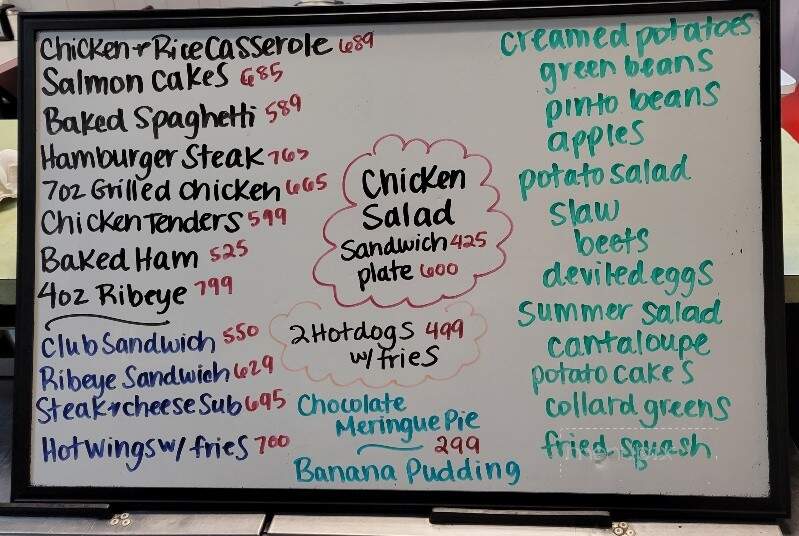 Chicken + Rice Casserole 689
Salmon Cakes 685
Baked Spaghetti 589
Hamburger Steak 765
7oz Grilled chicken 665
Chicken Tenders 599
Baked Ham 525
4oz Ribeye 799
Club Sandwich 550
Ribeye Sandwich 629
Steak + cheese Sub 695
Hot Wings w/ fries 700
Chicken
Salad
Sandwich 425
plate 600
2 Hotdogs 499
w/ fries
Chocolate
Meringue Pie
299
Banana Pudding
creamed potatoes
green beans
pinto beans
apples
potato salad
slaw
beets
deviled eggs
summer salad
cantaloupe
potato cakes
collard greens
fried squash